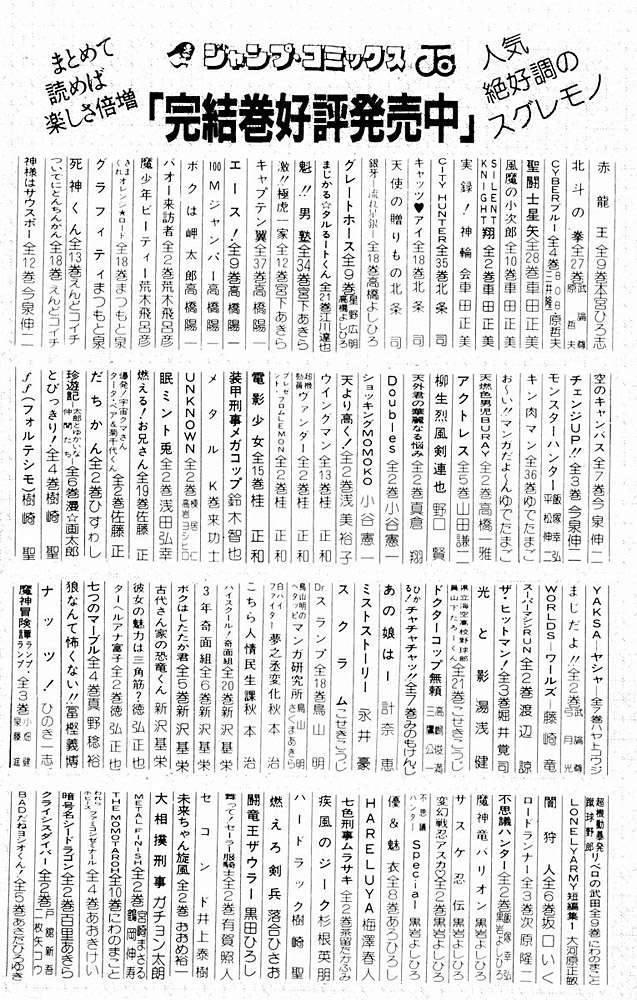 まとめて
読めば
楽しさ倍増
ジャンプ・コミックス
人気
絶好調の
スグレモノ
「完結巻好評発売中」
赤龍王全9巻本宮ひろ志
北斗の拳全27巻武論尊 原哲夫
CYBERブルー全4巻
風魔の小次郎全10巻車田正美
聖闘士星矢全28巻車田正美
SILENT KNIGHT翔全2巻車田正美
実録!神輪会車田正美
CITY HUNTER全35巻北条司
キャッツ♥アイ全18巻北条司
天使の贈りもの北条司
銀牙―流れ星銀―全18巻高橋よしひろ
グレートホース全9巻星野広明 高橋よしひろ
まじかる☆タルるートくん全21巻江川達也
魁!!男塾全34巻宮下あきら
激!!極虎一家全12巻宮下あきら
キャプテン翼全37巻高橋陽一
エース!全9巻高橋陽一
100Mジャンパー高橋陽一
ボクは岬太郎高橋陽一
バオー来訪者全2巻荒木飛呂彦
魔少年ビーティー荒木飛呂彦
きまぐれオレンジ★ロード全18巻まつもと泉
グラフィティまつもと泉
死神くん全13巻えんどコイチ
ついでにとんちんかん全18巻えんどコイチ
神様はサウスポー全12巻今泉伸二
空のキャンバス全7巻今泉伸二
チェンジUP!!全3巻今泉伸二
モンスターハンター飯塚幸弘 平松伸二
キン肉マン全36巻ゆでたまご
おーい!!マンガだよーんゆでたまご
天燃色男児BURAY全2巻高橋一雅
アクトレス全5巻山田謙二
柳生烈風剣連也野口賢
天外君の華麗なる悩み全2巻真倉翔
Doubles全2巻小谷憲一
ショッキングMOMOKO小谷憲一
天より高く!全2巻浅美裕子
ウイングマン全13巻桂正和
超機動員ヴァンダー全2巻桂正和
プレゼント・フロムLEMON全2巻桂正和
電影少女全15巻桂正和
装甲刑事メガコップ鈴木智也
メタルK巻来功士
UNKNOWN全2巻
眠兎全2巻浅田弘幸
燃える!お兄さん全19巻佐藤正
爆発!宇宙クマさん
だちかん全2巻ひすわし
珍遊記―太郎とゆかいな仲間たち―全6巻漫☆画太郎
とびっきり!全4巻樹崎聖
ff(フォルテシモ)樹崎聖
YAKSA―ヤシャ―全7巻ハヤトコウジ
まじだよ!!全2巻武論尊 月光
WORLDS―ワールズ―藤崎竜
スーパーマシンRUN全2巻渡辺諒
ザ・ヒットマン!全3巻堀井覚司
光と影湯浅健
県立海空高校野球部員山下たろーくん全21巻こせきこうじ
ドクターコップ無頼高嶋俊満 三鷹公一
ひかる!チャチャチャッ!!全7巻みのもけんじ
あの娘は!計奈恵
ミストストーリー永井豪
スクラムこせきこうじ
Dr.スランプ全18巻鳥山明
鳥山明のヘタッピマンガ研究所さくまあきら 鳥山明
白バイファイター夢之丞変化秋本治
こちら人情民生課秋本治
ハイスクール!奇面組全20巻新沢基栄
3年奇面組全6巻新沢基栄
ボクはしたたか君全5巻新沢基栄
古代さん家の恐竜くん新沢基栄
彼女の魅力は三角筋?徳弘正也
ターヘルアナ富子全2巻徳弘正也
七つのマーブル全4巻真野稔裕
狼なんて怖くない!!冨樫義博
ナッツ!ひのき一志
魔神冒険譚ランプ・ランプ全3巻小畑健 泉藤進
超機動暴発蹴球野郎リベロの武田全9巻にわのまこと
LONELY ARMY短編集1大河原正敏
闇狩人全6巻坂口いく
ロードランナー全3巻次原隆二
不思議ハンター全2巻飯塚幸弘 黒岩よしひろ
魔神竜バリオン黒岩よしひろ
サスケ忍伝黒岩よしひろ
変幻戦忍アスカ♡全2巻黒岩よしひろ
不思議ハンターSpecial黒岩よしひろ
優&魅衣全8巻あろひろし
HARELUYA梅澤春人
七色刑事ムラサキ全2巻茶留たかふみ
疾風のジーク杉根英明
ハードラック樹崎聖
燃えろ剣兵落合ひさお
闘竜王ザウラー黒田ひろし
舞って!セーラー服騎士全2巻有賀照人
セコンド井上泰樹
未来ちゃん旋風全2巻おおめ裕一
大相撲刑事ガチョン太朗
METAL FINISH全2巻宮崎まさる 鶴岡伸寿
THE MOMOTAROH全10巻にわのまこと
全4巻あおきけい
暗号名シードラゴン全2巻百里あきら
クライシスダイバー全2巻戸舘新吾 二枚矢コウ
BADだねヨシオくん!全5巻あさだひろゆき